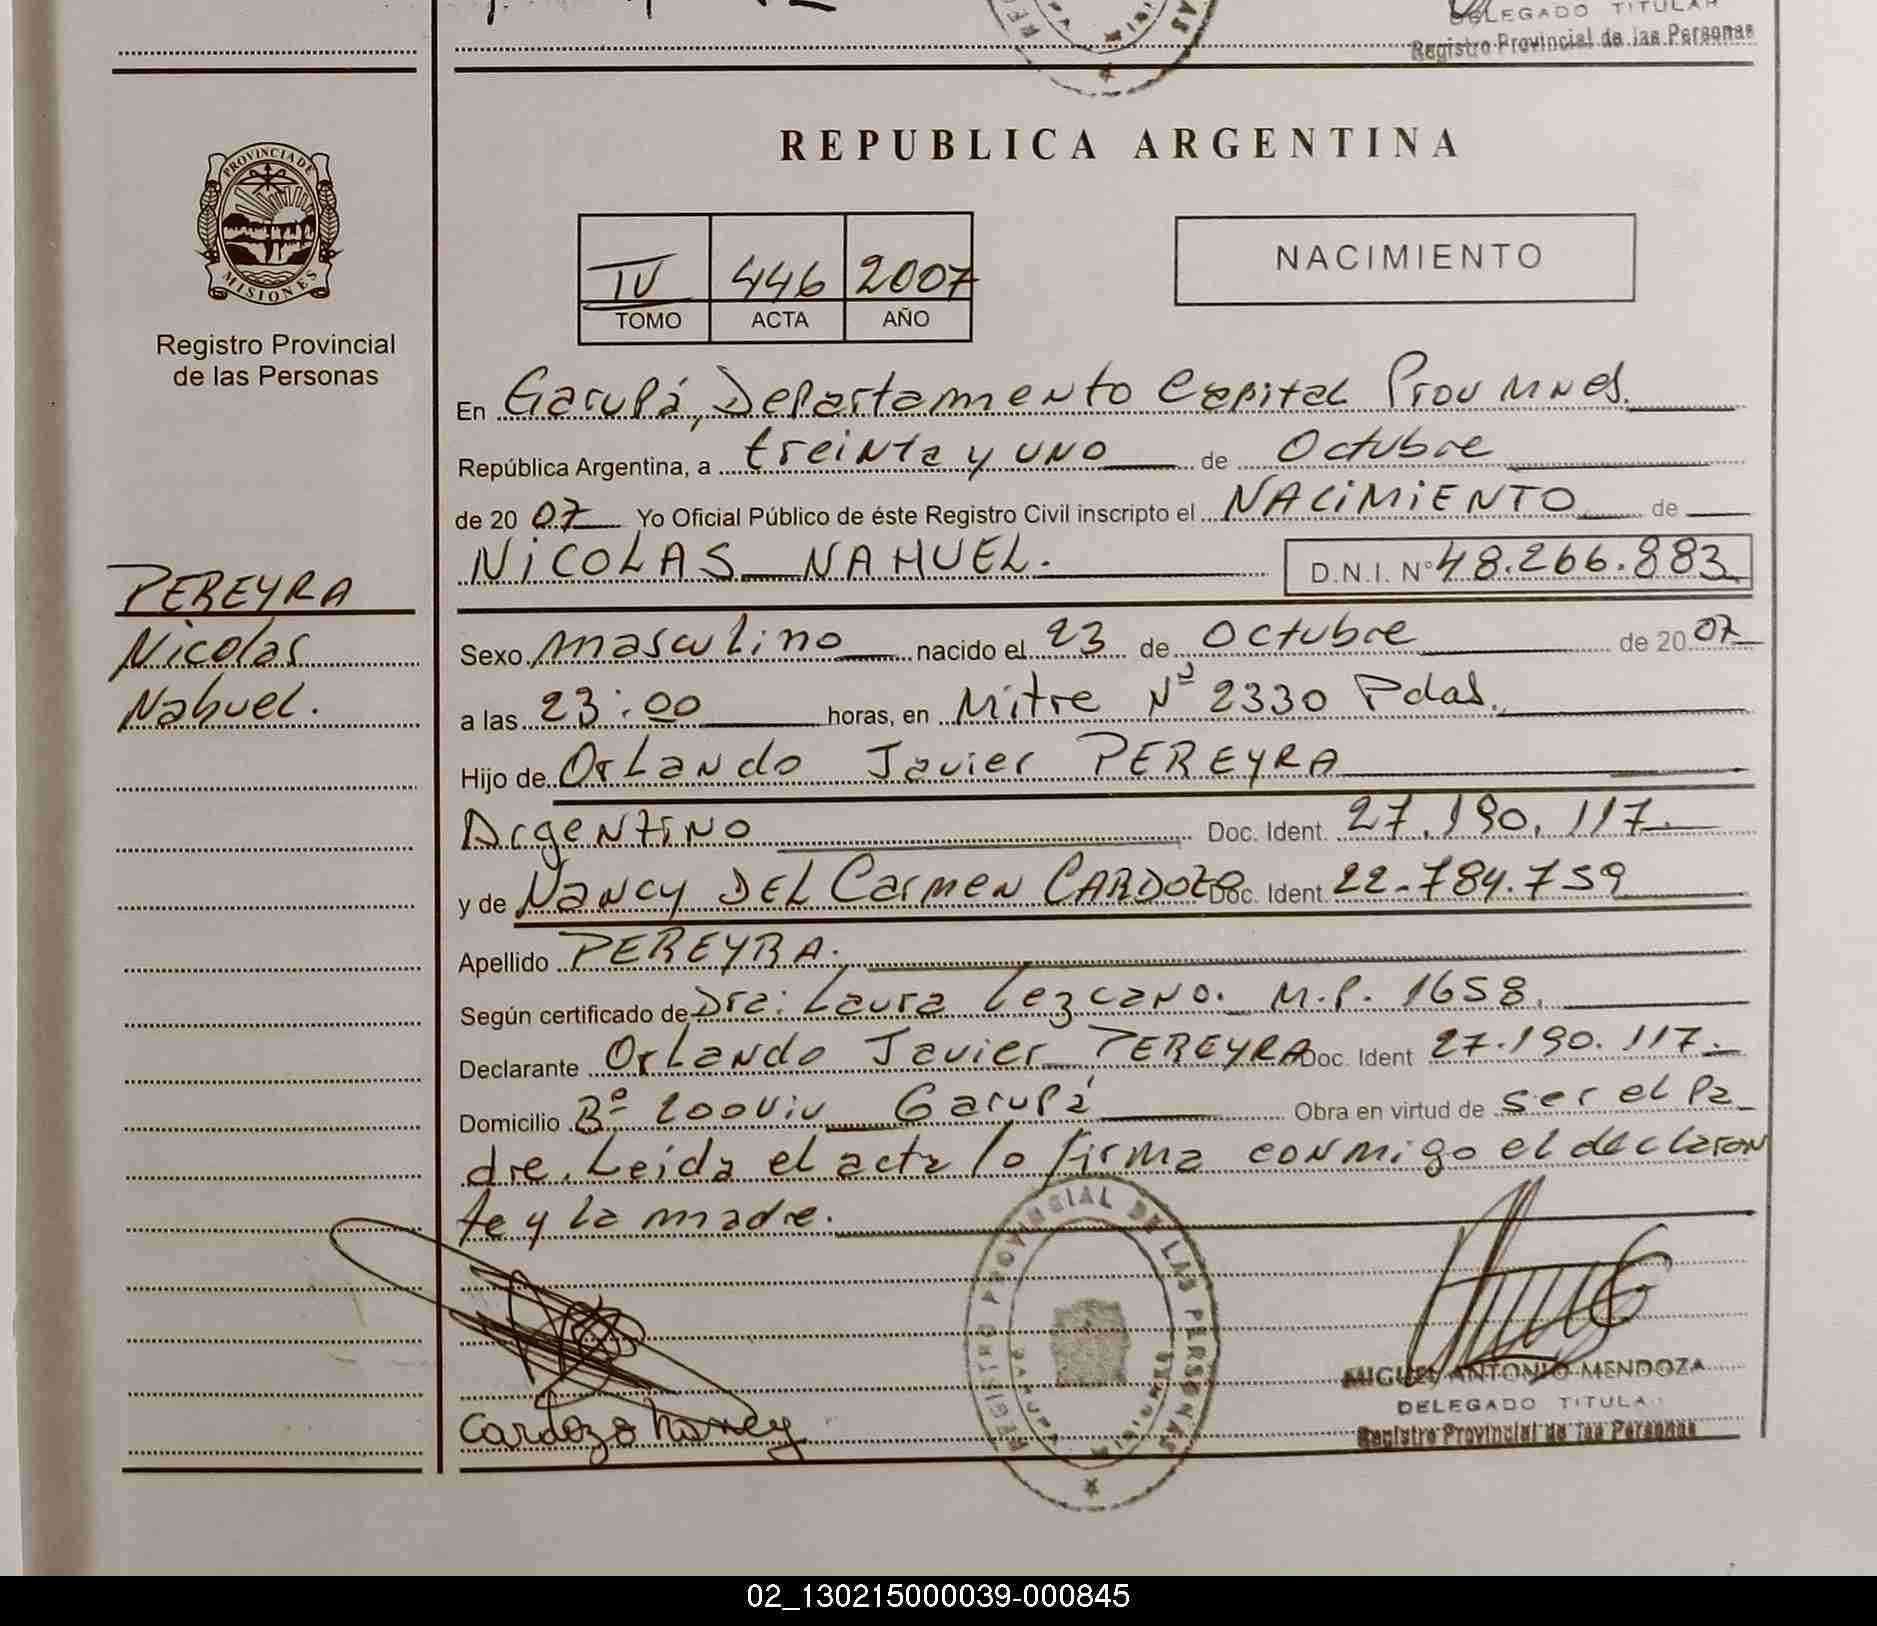 DELEGADO TITULAR
Registro Provincial de las Personas
PROVINCIA DE
MISIONES
Registro Provincial
de las Personas
REPUBLICA ARGENTINA
IV 446 2007
TOMO ACTA AÑO
NACIMIENTO
En Garupá, Departamento Capital Prov Mnes.
República Argentina, a treinta y uno de Octubre
de 2007 Yo Oficial Público de éste Registro Civil inscripto el NACIMIENTO de
NICOLAS NAHUEL. D.N.I. Nº 48.266.883
PEREYRA
Nicolas
Nahuel.
Sexo masculino nacido el 23 de Octubre de 2007
a las 23:00 horas, en Mitre Nº 2330 Pdas.
Hijo de Orlando Javier PEREYRA
Argentino Doc. Ident. 27.190.117.
y de Nancy DEL Carmen CARDOZO Doc. Ident. 22.784.759
Apellido PEREYRA.
Según certificado de Dra: Laura Lezcano. M.P. 1658.
Declarante Orlando Javier PEREYRA Doc. Ident 27.190.117.
Domicilio Bº 200 Viv Garupá Obra en virtud de ser el pa
dre. Leida el acta lo firma conmigo el declaran
te y la madre.
Cardozo Nancy
REGISTRO PROVINCIAL DE LAS PERSONAS
GARUPA
MIGUEL ANTONIO MENDOZA
DELEGADO TITULA
Registro Provincial de las Personas
02_130215000039-000845